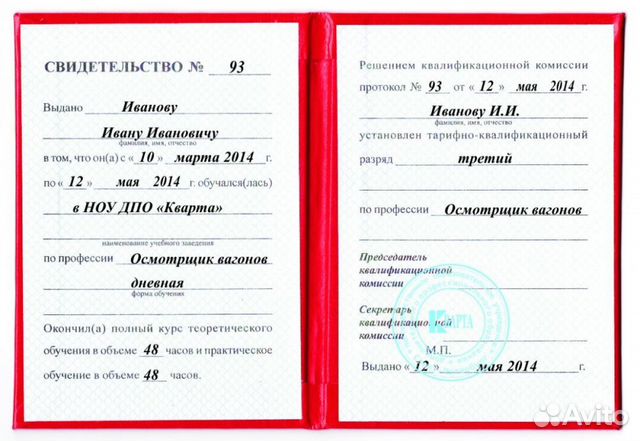 СВИДЕТЕЛЬСТВО № 93
Выдано Иванову
Ивану Ивановичу
фамилия, имя, отчество
в том, что он(а) с « 10 » марта 2014 г.
по « 12 » мая 2014 г. обучался(лась)
в НОУ ДПО «Кварта»
наименование учебного заведения
по профессии Осмотрщик вагонов
дневная
форма обучения
Окончил(а) полный курс теоретического
обучения в объеме 48 часов и практическое
обучение в объеме 48 часов.
Решением квалификационной комиссии
протокол № 93 от « 12 » мая 2014 г.
Иванову И.И.
фамилия, имя, отчество
установлен тарифно-квалификационный
разряд третий
по профессии Осмотрщик вагонов
Председатель
квалификационной
комиссии
Секретарь
квалификационной
комиссии
КВАРТА
М.П.
Выдано « 12 » мая 2014 г.
Avito